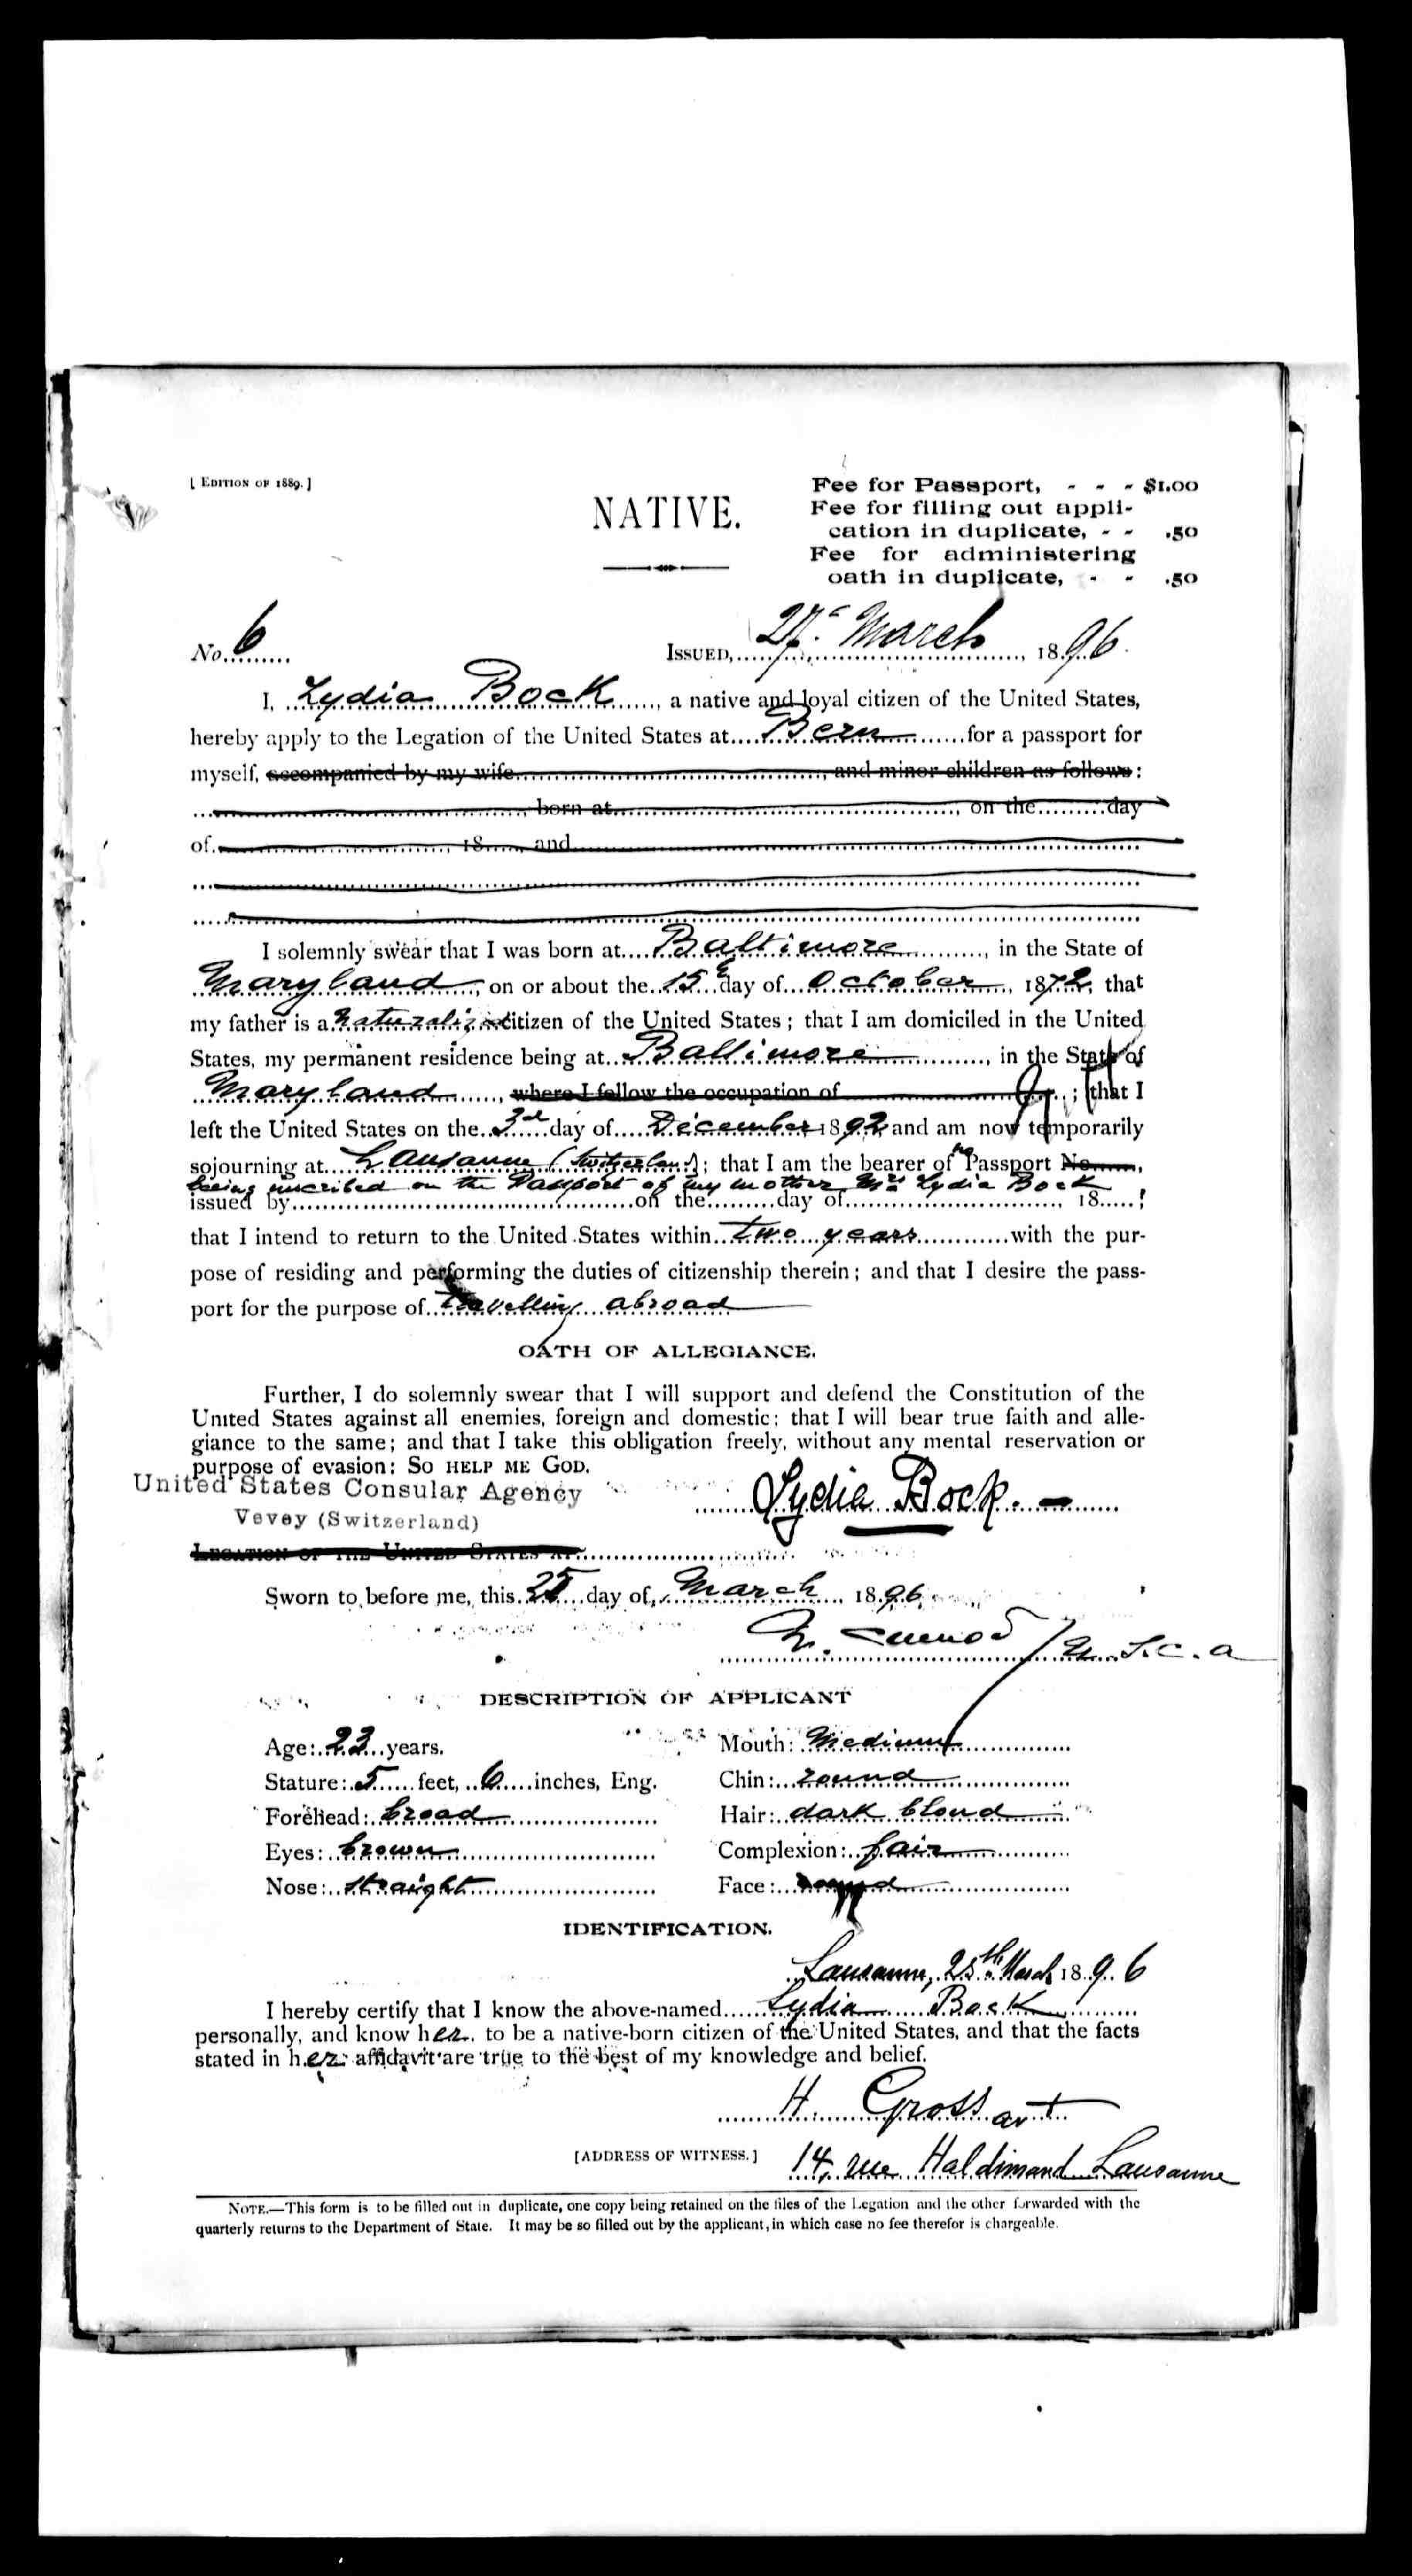 [ EDITION OF 1889. ]
NATIVE.
Fee for Passport, - - - $1.00
Fee for filling out appli-
cation in duplicate, - - .50
Fee for administering
oath in duplicate, - - .50
No. 6
ISSUED, 27. March, 1896.
I, Lydia Bock, a native and loyal citizen of the United States,
hereby apply to the Legation of the United States at Bern for a passport for
myself, accompanied by my wife, and minor children as follows:
, born at, on the day
of, 18, and
I solemnly swear that I was born at Baltimore, in the State of
Maryland, on or about the 15 day of October, 1872, that
my father is a naturalized citizen of the United States; that I am domiciled in the United
States, my permanent residence being at Baltimore, in the State of
Maryland, where I follow the occupation of; that I
left the United States on the 3d day of December 1892 and am now temporarily
sojourning at Lausanne (Switzerland); that I am the bearer of no Passport No.,
being inscribed on the Passport of my mother Mrs Lydia Bock
issued by on the day of, 18;
that I intend to return to the United States within two years with the pur-
pose of residing and performing the duties of citizenship therein; and that I desire the pass-
port for the purpose of travelling abroad
OATH OF ALLEGIANCE.
Further, I do solemnly swear that I will support and defend the Constitution of the
United States against all enemies, foreign and domestic; that I will bear true faith and alle-
giance to the same; and that I take this obligation freely, without any mental reservation or
purpose of evasion: SO HELP ME GOD.
United States Consular Agency
Vevey (Switzerland)
Lydia Bock.
LEGATION OF THE UNITED STATES AT
Sworn to before me, this 25 day of March, 1896
Cuenod / U.S.C.A
DESCRIPTION OF APPLICANT
Age: 23 years. Mouth: Medium
Stature: 5 feet, 6 inches, Eng. Chin: round
Forehead: broad Hair: dark blond
Eyes: brown Complexion: fair
Nose: straight Face: round
IDENTIFICATION.
Lausanne, 25th March 1896
I hereby certify that I know the above-named Lydia Bock
personally, and know her to be a native-born citizen of the United States, and that the facts
stated in her affidavit are true to the best of my knowledge and belief.
H. Grossart
[ADDRESS OF WITNESS.] 14, rue Haldimand Lausanne
NOTE.—This form is to be filled out in duplicate, one copy being retained on the files of the Legation and the other forwarded with the
quarterly returns to the Department of State. It may be so filled out by the applicant, in which case no fee therefor is chargeable.